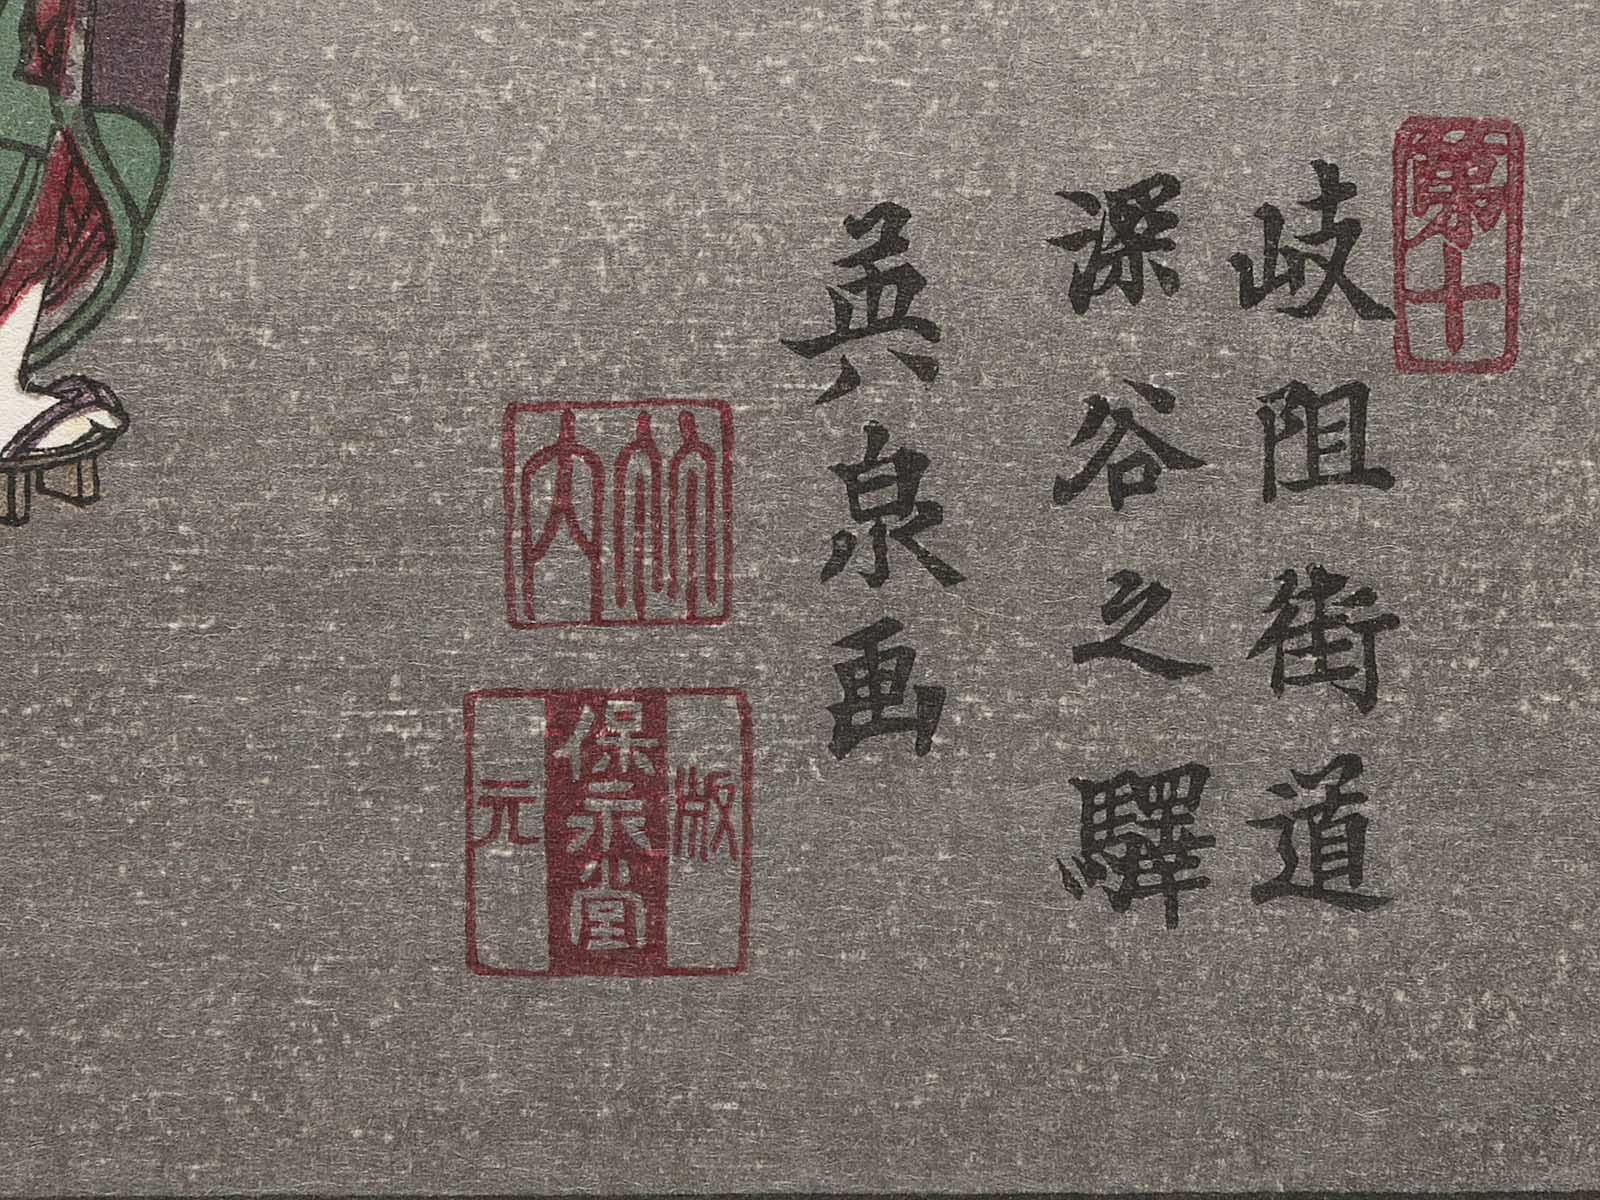 第十
岐阻街道
深谷之驛
英泉画
竹内
版
保永堂
元